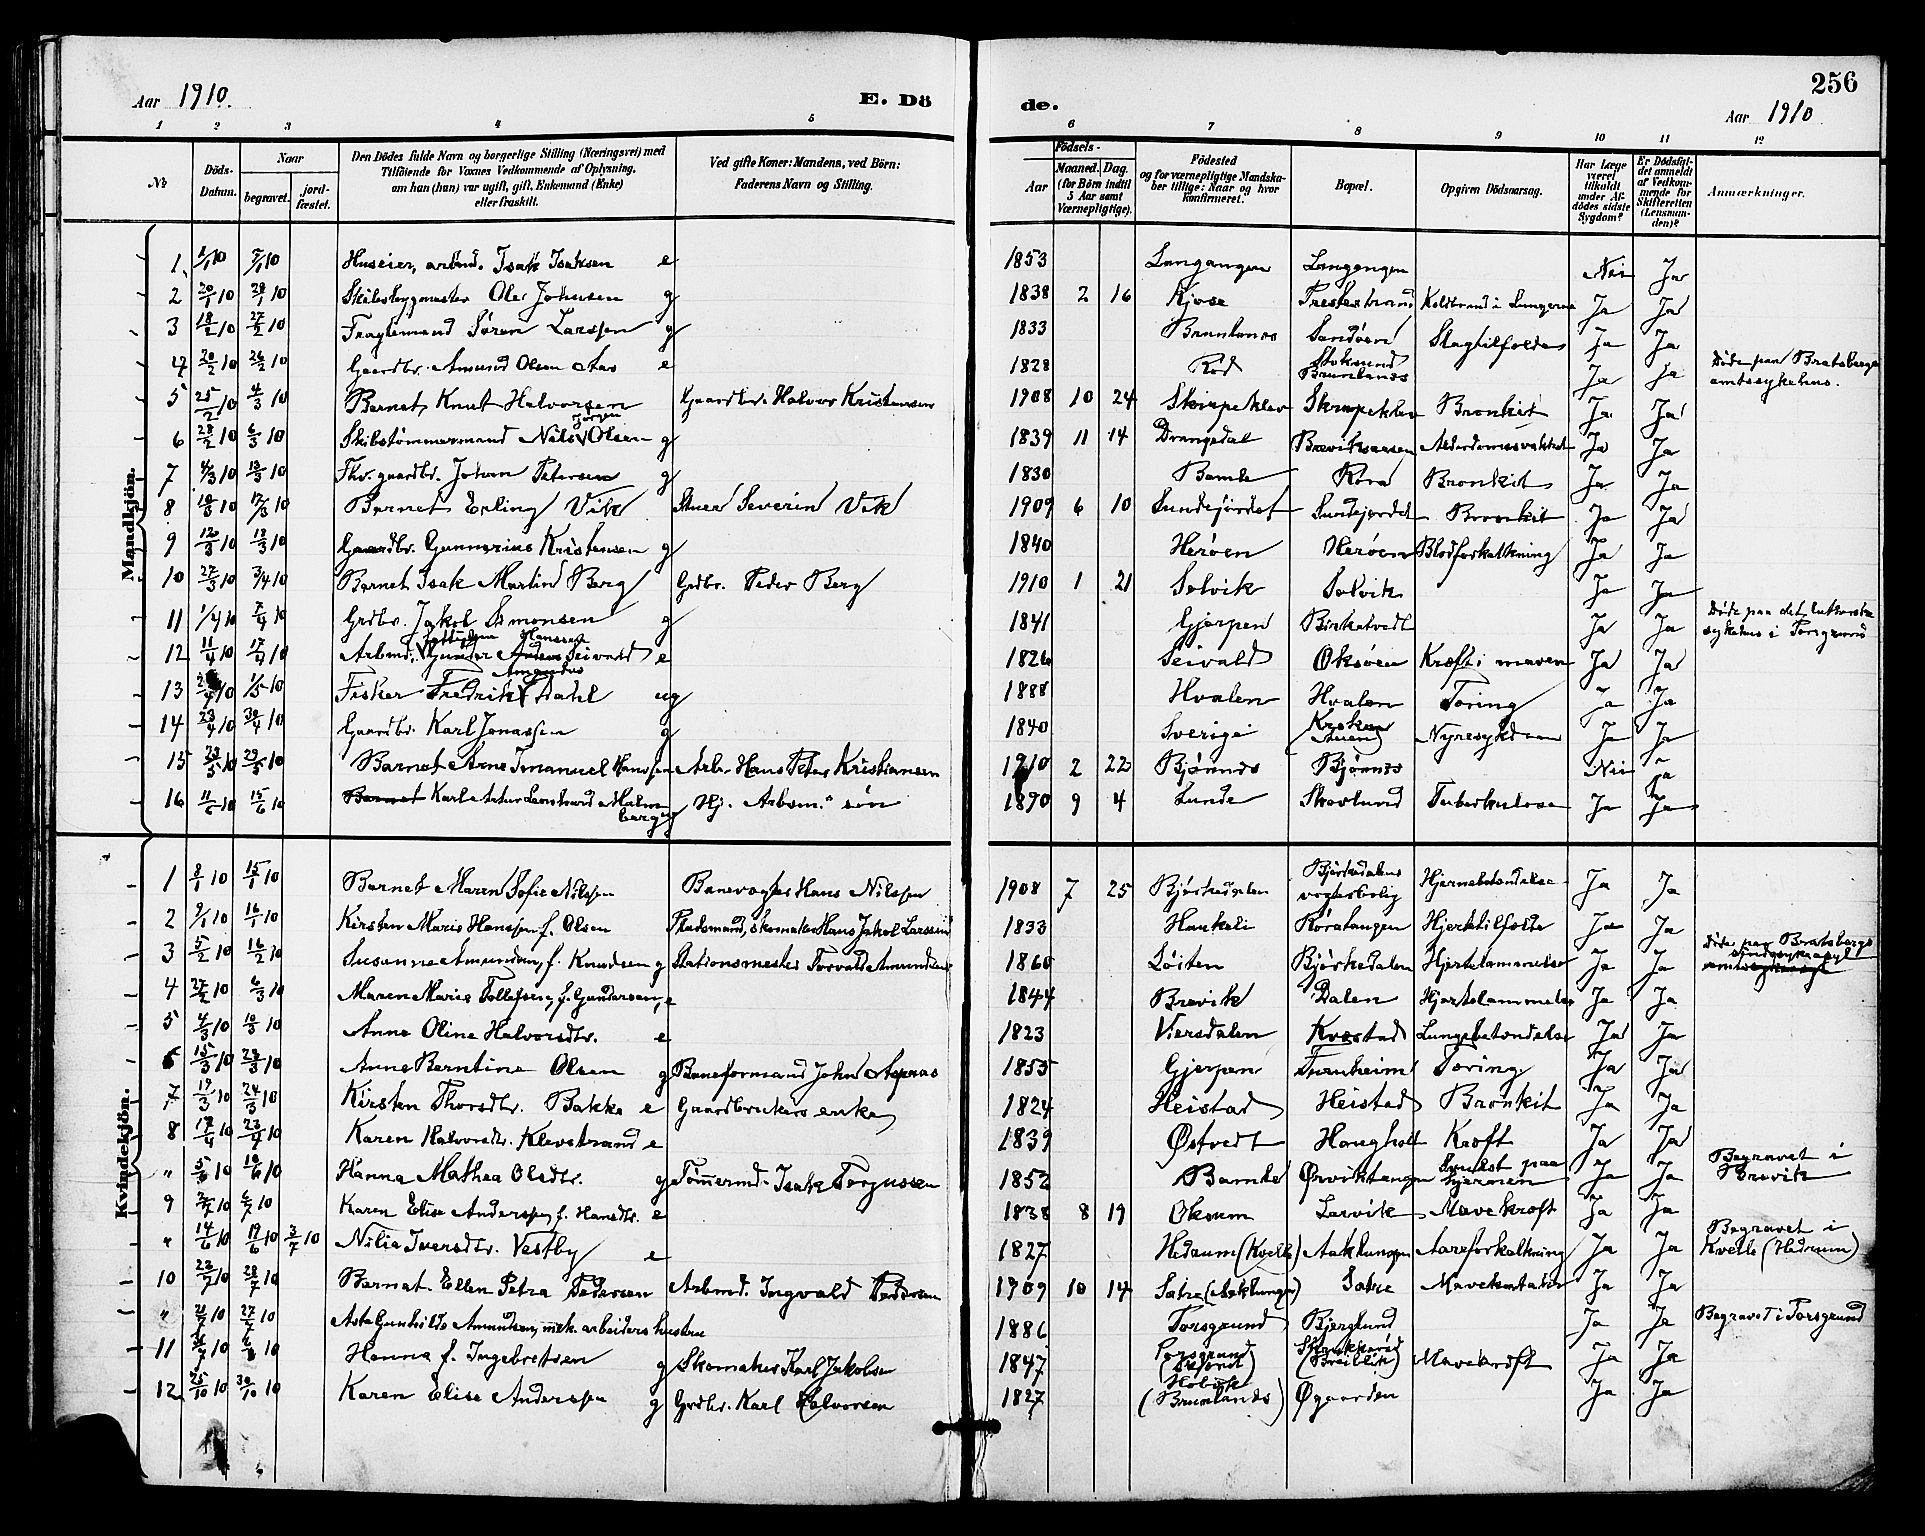 256
Aar 1910.
E. Dö
de.
Aar 1910
1 2 3 4 5 6 7 8 9 10 11 12
№
Döds-Datum.
Naar
begravet.
jord-fæstet.
Den Dödes fulde Navn og borgerlige Stilling (Næringsvei) med
Tilföiende for Voxnes Vedkommende af Oplysning,
om han (hun) var ugift, gift, Enkemand (Enke)
eller fraskilt.
Ved gifte Koner: Mandens, ved Börn:
Faderens Navn og Stilling.
Födsels-
Aar
Maaned. Dag.
(for Börn indtil
5 Aar samt
Værnepligtige).
Födested
og for værnepligtige Mandska-
ber tillige: Naar og hvor
konfirmeret.
Bopæl.
Opgiven Dödsaarsag.
Har Læge
været
tilkaldt
under Af-
dödes sidste
Sygdom?
Er Dödsfal-
det anmeldt
af Vedkom-
mende for
Skifteretten
(Lensman-
den)?
Anmærkninger.
Mandkjön.
1 1/1 10 7/1 10 Huseier, arbmd. Isak Isaksen e 1853 Langangen Langangen Nei Ja
2 20/1 10 28/1 10 Skibsbygmester Ole Johnsen g 1838 2 16 Kjose Koldbrand i Lungerne Ja Ja
3 18/2 10 27/2 10 Fragtemand Søren Larssen g 1833 Brunlanes Sandøen Slagtilfælde Ja Ja
4 20/2 10 26/2 10 Gaardbr. Amund Olsen Aas e 1828 Rød Stoksund Brunlanes Ja Ja Døde paa Bratsbergs amtssykehus.
5 25/2 10 4/3 10 Barnet Knut Halvorsen Gaardbr. Halvor Kristensen 1908 10 24 Skjrpeklev Skrupeklev Bronkit Ja Ja
6 28/2 10 6/3 10 Skibstømmermand Nils Jørgen Olsen g 1839 11 14 Drangedal Alderdomssvakhet Ja Ja
7 4/3 10 13/3 10 Fhv. gaardbr. Johan Petersen g 1830 Bamle Røra Bronkit Ja Ja
8 10/3 10 17/3 10 Barnet Erling Vik Stuer Severin Vik 1909 6 10 Sundejordet Sundejordet Bronkit Ja Ja
9 12/3 10 18/3 10 Gaardbr. Gunnerius Kristensen g 1840 Herøen Herøen Blodforkalkning Ja Ja
10 27/3 10 3/4 10 Barnet Isak Martin Berg Grdbr. Peder Berg 1910 1 21 Solvik Solvik Ja Ja
11 1/4 10 7/4 10 Grdbr. Jakob Simonsen g 1841 Gjerpen Birketvedt Ja Ja Døde paa det lutherske sykehus i Porsgrund
12 11/4 10 17/4 10 Arbmd. Gunder Hanssen Seivald e 1826 Seivald Oksøen Kræft i maven Ja Ja
13 10 1/5 10 Fisker Fredrik Amandus Dahl ug 1888 Hvalen Hvalen Tæring Ja Ja
14 23/4 10 30/4 10 Gaardbr. Karl Jonassen g 1840 Sverige Kroken Nyresykdom Ja Ja
15 23/5 10 29/5 10 Barnet Arne Imanuel Hanssen Arb. Hans Peter Kristiansen 1910 2 22 Bjønnes Bjønnes Nei Ja
16 11/6 10 15/6 10 Barnet Karl Artur Leonhard Malmberg ug Hj. Arbsm. søn 1890 9 4 Lunde Skoglund Tuberkulose Ja Ja
Kvindekjön.
1 8/1 10 15/1 10 Barnet Maren Sofie Nilssen Banevogter Hans Nilssen 1908 7 25 Bjørkedalen Bjørkedalens vogterbolig Hjernebetændelse Ja Ja
2 9/1 10 16/1 10 Kirsten Marie Hanssen f. Olsen Pladsmand, skomaker Hans Jakob Larssen 1833 Haukeli Røratangen Hjertetilfælde Ja Ja
3 5/2 10 16/2 10 Susanne Amundsen, f. Knudsen g Stationsmester Torvald Amundsen 1860 Løiten Bjørkedalen Hjertelammelse Ja Ja Døde paa Bratsbergs sindssykeasyl
4 27/2 10 6/3 10 Maren Marie Tollefsen, f. Gundersen, e 1844 Brevik Dalen Hjertelammelse Ja Ja
5 4/3 10 10/3 10 Anne Oline Halvorsdtr. e 1823 Viersdalen Kvæstad Lungebetændelse Ja Ja
6 15/3 10 23/3 10 Anne Berntine Olsen g Baneformand John Aspaas 1855 Gjerpen Furuheim Tæring Ja Ja
7 17/3 10 24/3 10 Kirsten Thorsdtr. Bakke e Gaardbrukers enke 1824 Heistad Heistad Bronkit Ja Ja
8 17/4 10 23/4 10 Karen Halvorsdtr. Klevstrand e 1839 Østvedt Haugholt Kræft Ja Ja
" 5/6 10 10/6 10 Hanna Mathea Olsdtr. g Tømmermd. Isak Torgussen 1852 Bamle Ørviktangen Svulst paa hjernen Ja Ja Begravet i Brevik
9 2/7 10 6/7 10 Karen Elise Anderssen, f. Hansdtr. e 1838 8 19 Oksum Larvik Mavekræft Ja Ja
" 14/6 10 19/6 10 3/7 10 Nilia Iversdtr. Vestby e 1827 Hedrum (Kvelle) Aaklungen Aareforkalkning Ja Ja Begravet i Kvelle (Hedrum)
10 23/7 10 28/7 10 Barnet Ellen Petra Pedersen Arbmd. Ingvald Pedersen 1909 10 14 Satre (Aaklungen) Satre Mavekatarr Ja Ja
" 21/7 10 27/7 10 Asta Gunhilde Amundsen, mek. arbeiders hustru 1886 Porsgrund Bjerglund Ja Ja Begravet i Porsgrund
11 10 10 Hanna f. Ingebretsen g Skomaker Karl Jakobsen 1847 Porsgrund Mavekræft Ja Ja
12 25/10 10 30/10 10 Karen Elise Anderssen g Grdbr. Karl Halvorsen 1827 (Brunlanes) Øgaarden Ja Ja